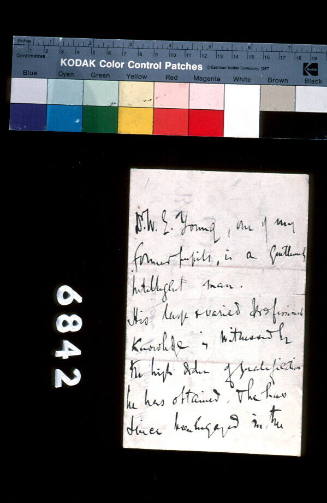 Inches
Centimetres
KODAK Color Control Patches
Kodak
Blue Cyan Green Yellow Red Magenta White Brown Black
6842
D. W. E. Young, one of my
former pupils, is a Gentlemanly
Intelligent man.
His large & varied Professional
Knowledge is witnessed by
the high order of qualification
he has obtained. He has
since been engaged in the